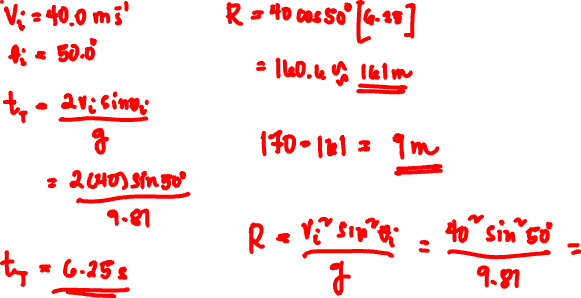 Vi = 40.0 m s⁻¹
θi = 50.0°
tT = 2vi sinθi / g
= 2(40) sin 50° / 9.81
tT = 6.25 s
R = 40 cos 50° [6.25]
= 160.6 ≈ 161 m
170 - 161 = 9 m
R = vi² sin² θi / g = 40² sin² 50° / 9.81 =